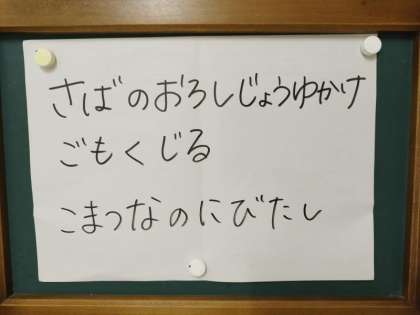 さばのおろしじょうゆかけ
ごもくじる
こまつなのにびたし